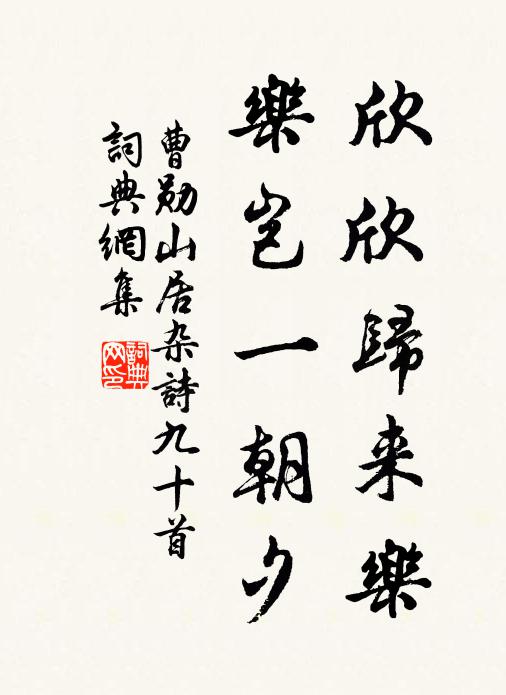 欣欣歸来樂
樂岂一朝夕
曹勋山居杂詩九十首
詞典網集
詞典網印